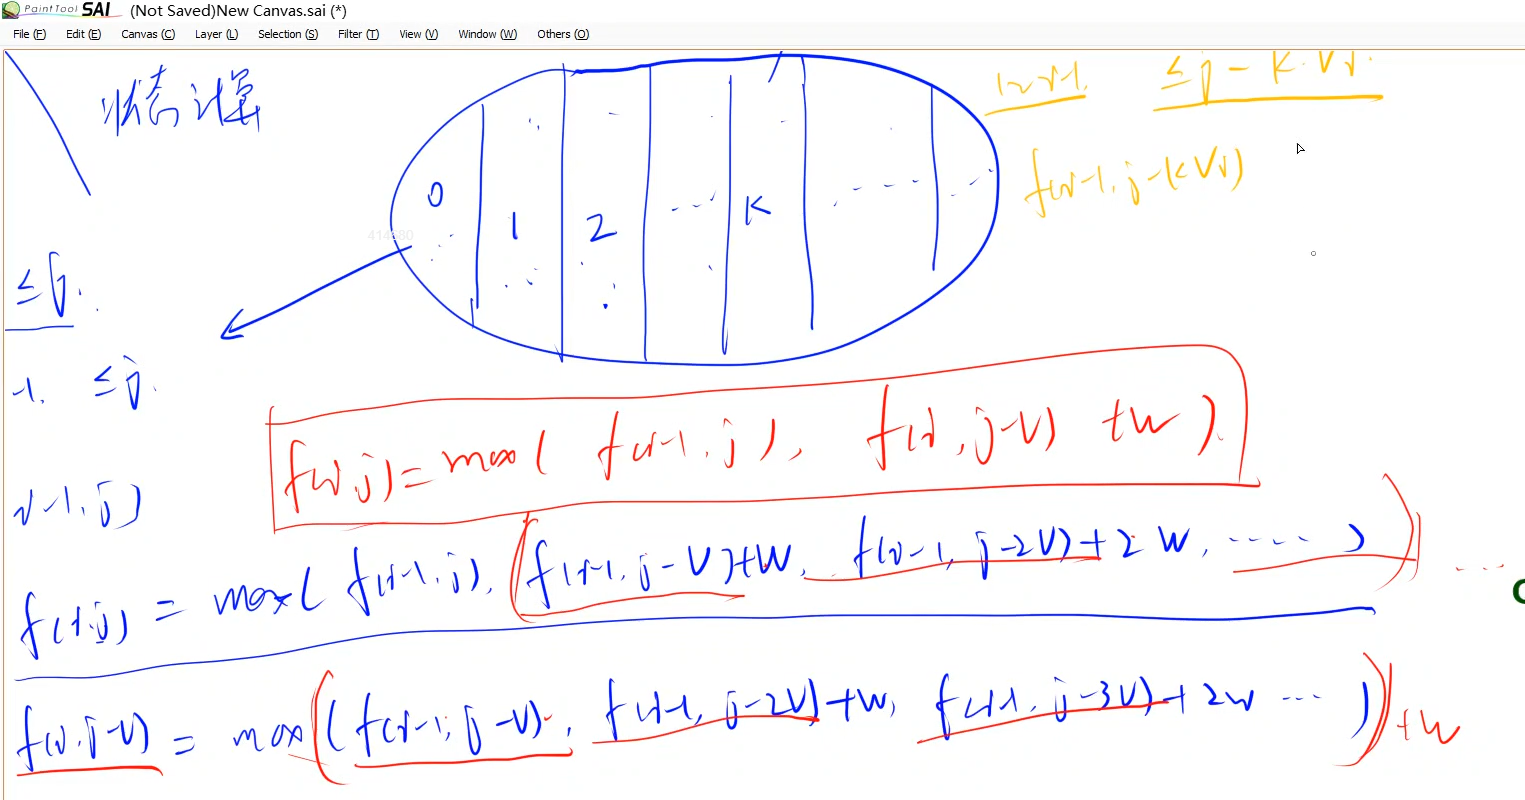 PaintTool SAI (Not Saved)New Canvas.sai (*)
File (F) Edit (E) Canvas (C) Layer (L) Selection (S) Filter (T) View (V) Window (W) Others (O)
状态计算
1~i-1. ≤j-k·Vi.
f(i-1, j-kVi)
0 1 2 ... K ...
414680
≤j.
-1. ≤j.
i-1, j)
f(i,j)=max( f(i-1, j), f(i, j-V) +W ).
f(i,j) = max( f(i-1, j), f(i-1, j-V)+W, f(i-1, j-2V)+2W, ..... ) ...
f(i, j-V) = max( f(i-1, j-V), f(i-1, j-2V)+W, f(i-1, j-3V)+2W ... ) +W